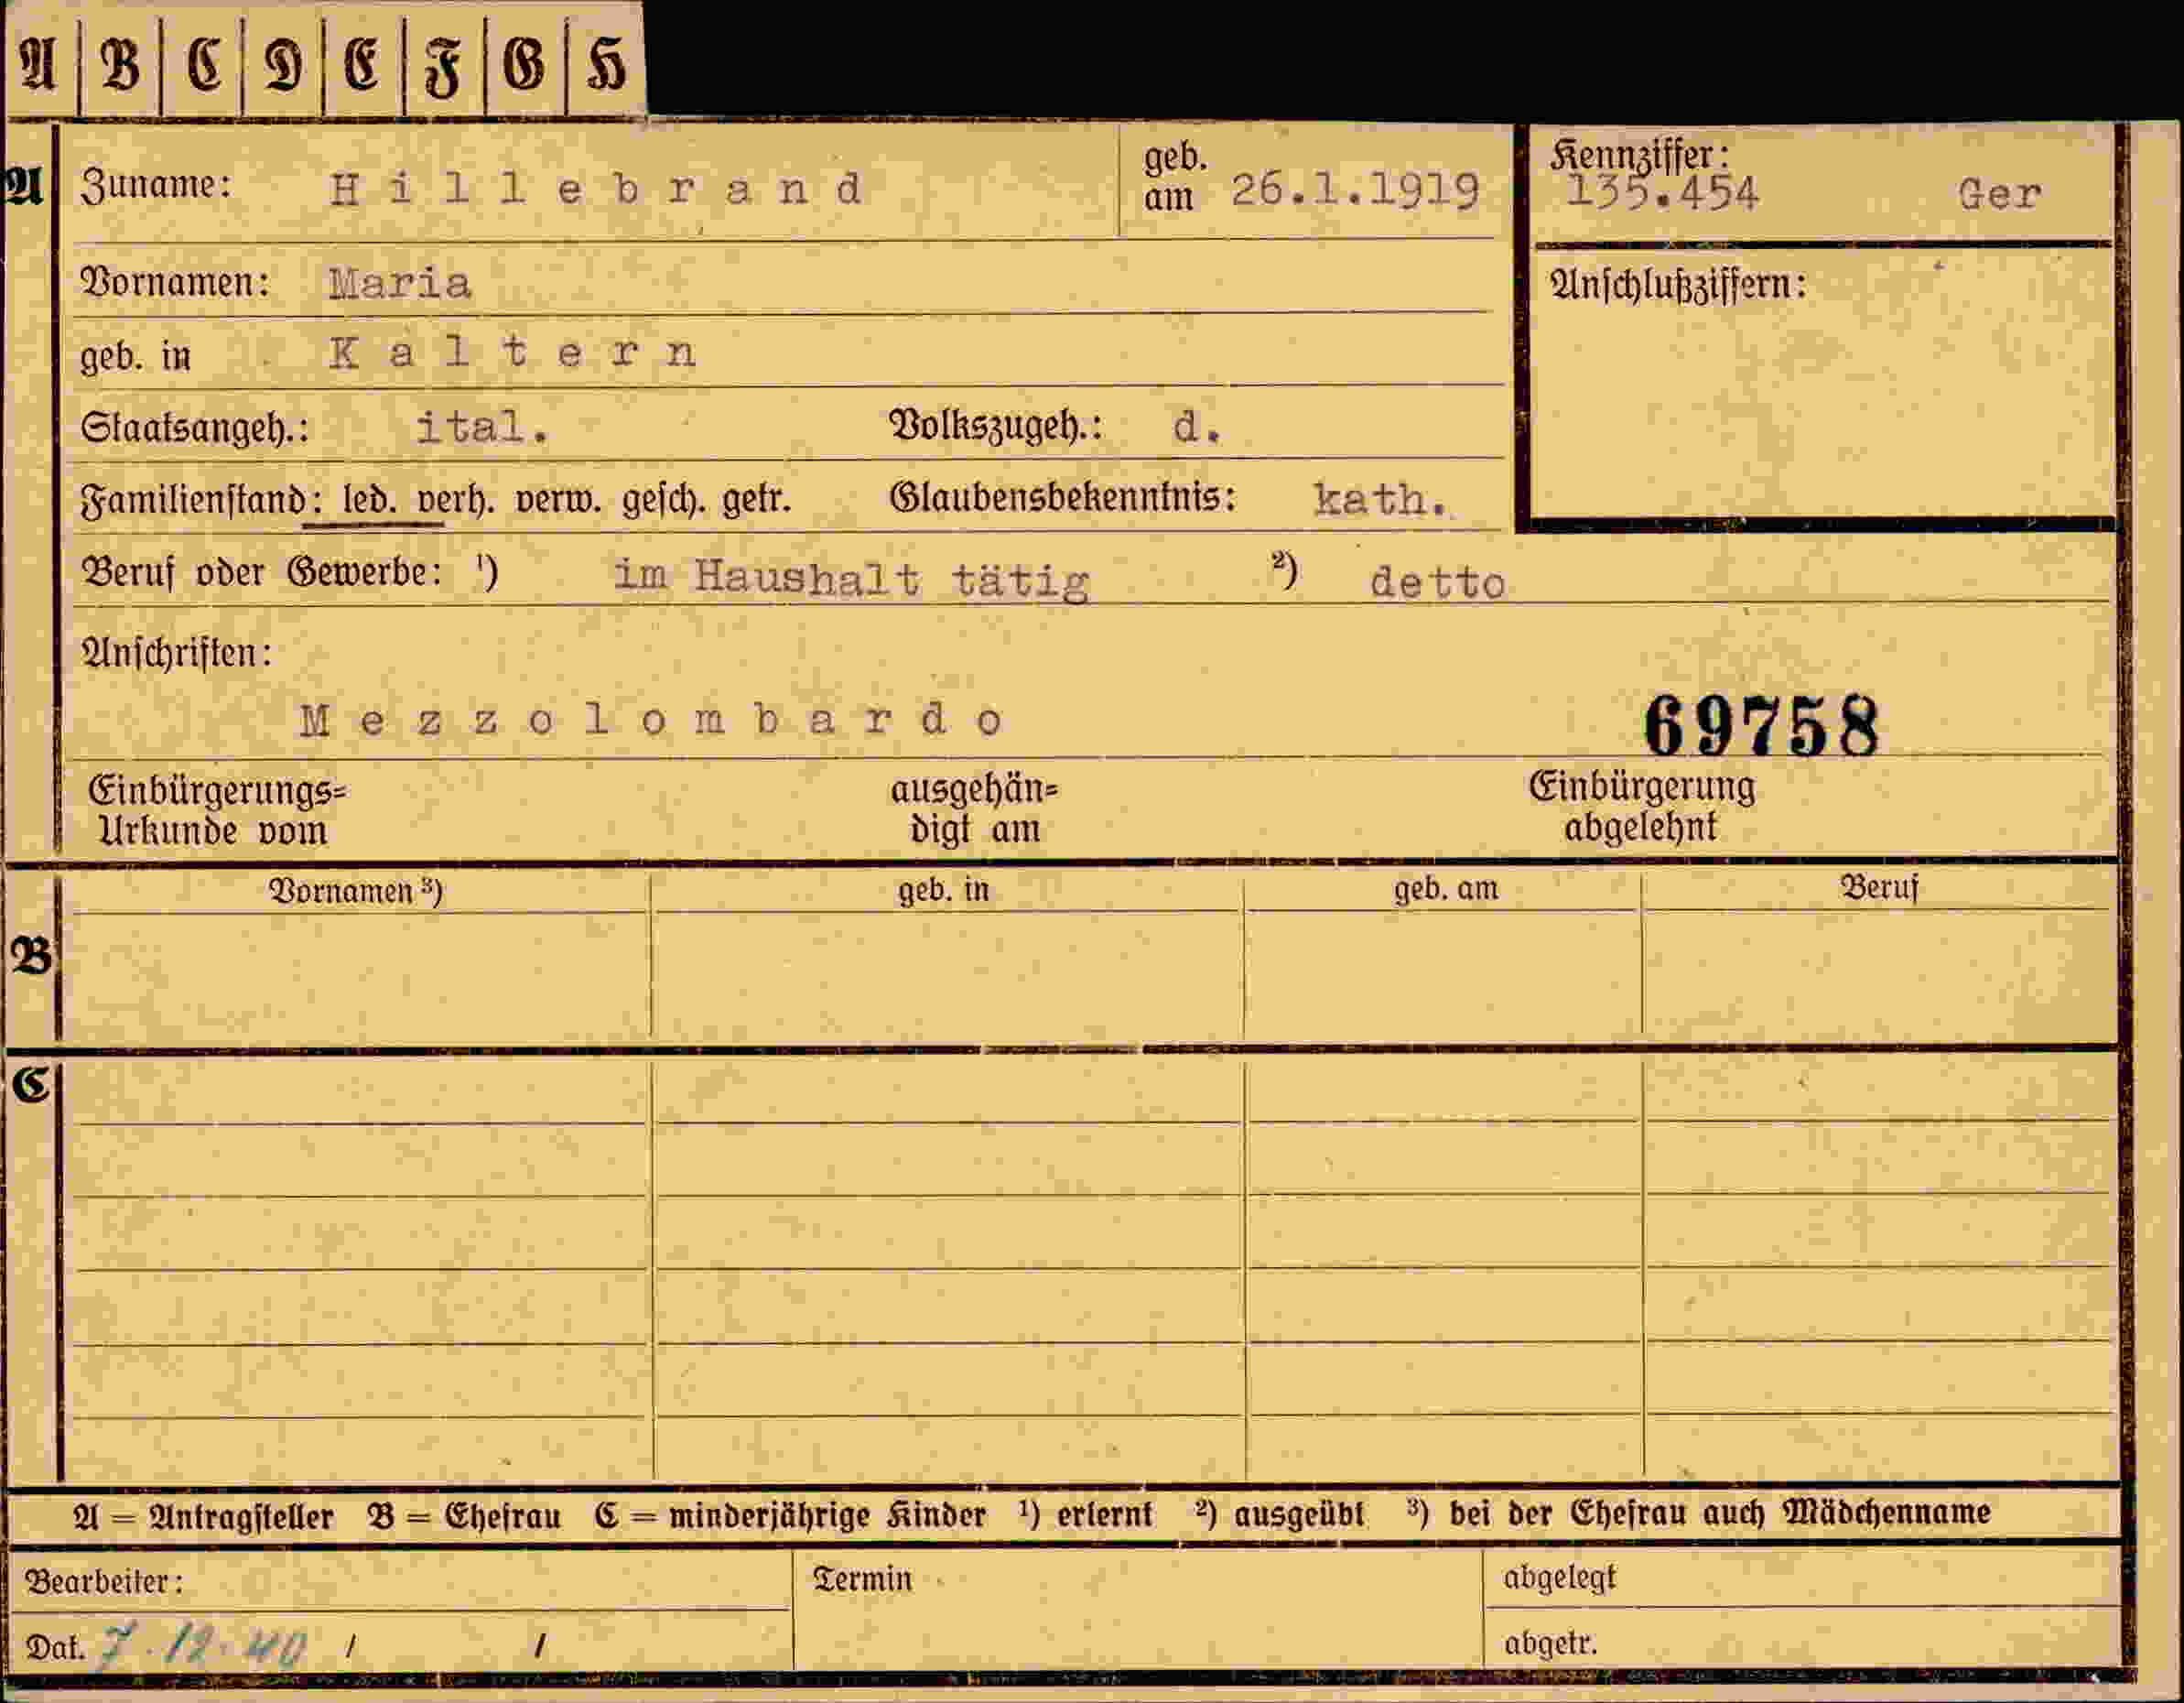 A B C D E F G H
A Zuname: Hillebrand geb. am 26.1.1919 Kennziffer: 135.454 Ger
Vornamen: Maria Anschlußziffern:
geb. in Kaltern
Staatsangeh.: ital. Volkszugeh.: d.
Familienstand: led. verh. verw. gesch. getr. Glaubensbekenntnis: kath.
Beruf oder Gewerbe: ¹) im Haushalt tätig ²) detto
Anschriften:
Mezzolombardo 69758
Einbürgerungs= ausgehän= Einbürgerung
Urkunde vom digt am abgelehnt
Vornamen ³) geb. in geb. am Beruf
B
C
A = Antragsteller B = Ehefrau C = minderjährige Kinder ¹) erlernt ²) ausgeübt ³) bei der Ehefrau auch Mädchenname
Bearbeiter: Termin abgelegt
Dat. 7.12.40 / / abgetr.